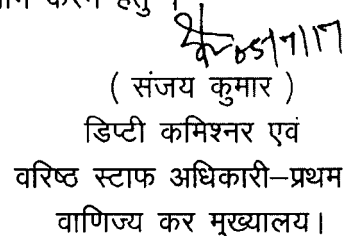 करने हेतु ।
05/7/17
( संजय कुमार )
डिप्टी कमिश्नर एवं
वरिष्ठ स्टाफ अधिकारी–प्रथम
वाणिज्य कर मुख्यालय।